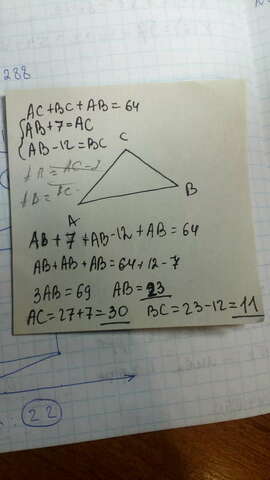 288
AC+BC+AB=64
AB+7=AC
AB-12=BC
C
B
A
AB+7+AB-12+AB=64
AB+AB+AB=64+12-7
3AB=69 AB=23
AC=27+7=30 BC=23-12=11
22